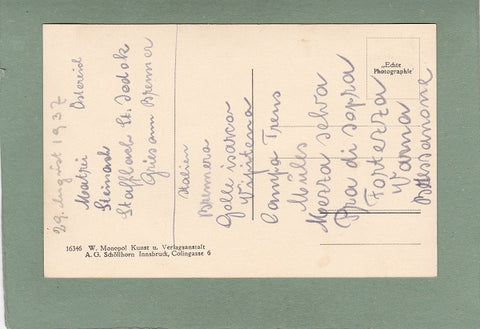 29. August 1937
Östereich
Matrei
Steinach
Stafflach St. Jodok
Gries am Brenner
Italien
Brennero
Colle isarco
Vipitena
Campo Trens
Mules
Mezza selva
Pra di sopra
Fortezza
Varna
Bressanone
„Echte
Photographie"
16346 W. Monopol Kunst u. Verlagsanstalt
A. G. Schöllhorn Innsbruck, Colingasse 6